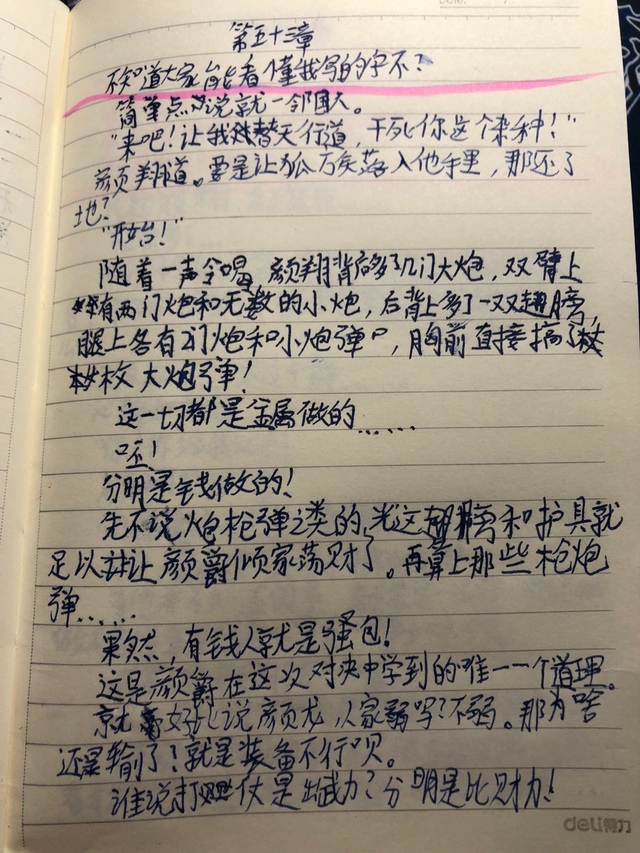 第五十三章
不知道大家能看懂我写的字不?
简单点说就一邻国人。
"来吧!让我替天行道,干死你这个杂种!"
颜翔道。要是让狐万矣落入他手里,那还了
地?
"开始!"
随着一声令喝,颜翔背后多了几门大炮,双臂上
有两门炮和无数的小炮,后背上多了一双翅膀,
腿上各有2门炮和小炮弹,胸前直接搞了
枚大炮弹!
这一切都是金属做的……
呸!
分明是钱做的!
先不说炮枪弹之类的,光这翅膀和护具就
足以让颜爵倾家荡财了。再算上那些枪炮
弹……
果然,有钱人就是骚包!
这是颜爵在这次对决中学到的唯一一个道理。
就好比说颜龙,人家弱吗?不弱。那为啥
还是输了?就是装备不行呗。
谁说打仗是出武力?分明是比财力!
deli得力